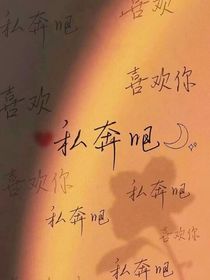 喜欢你
私奔吧
喜欢你
喜欢
私奔吧
喜欢你
私奔吧
私奔吧
私奔吧
喜欢你
喜欢